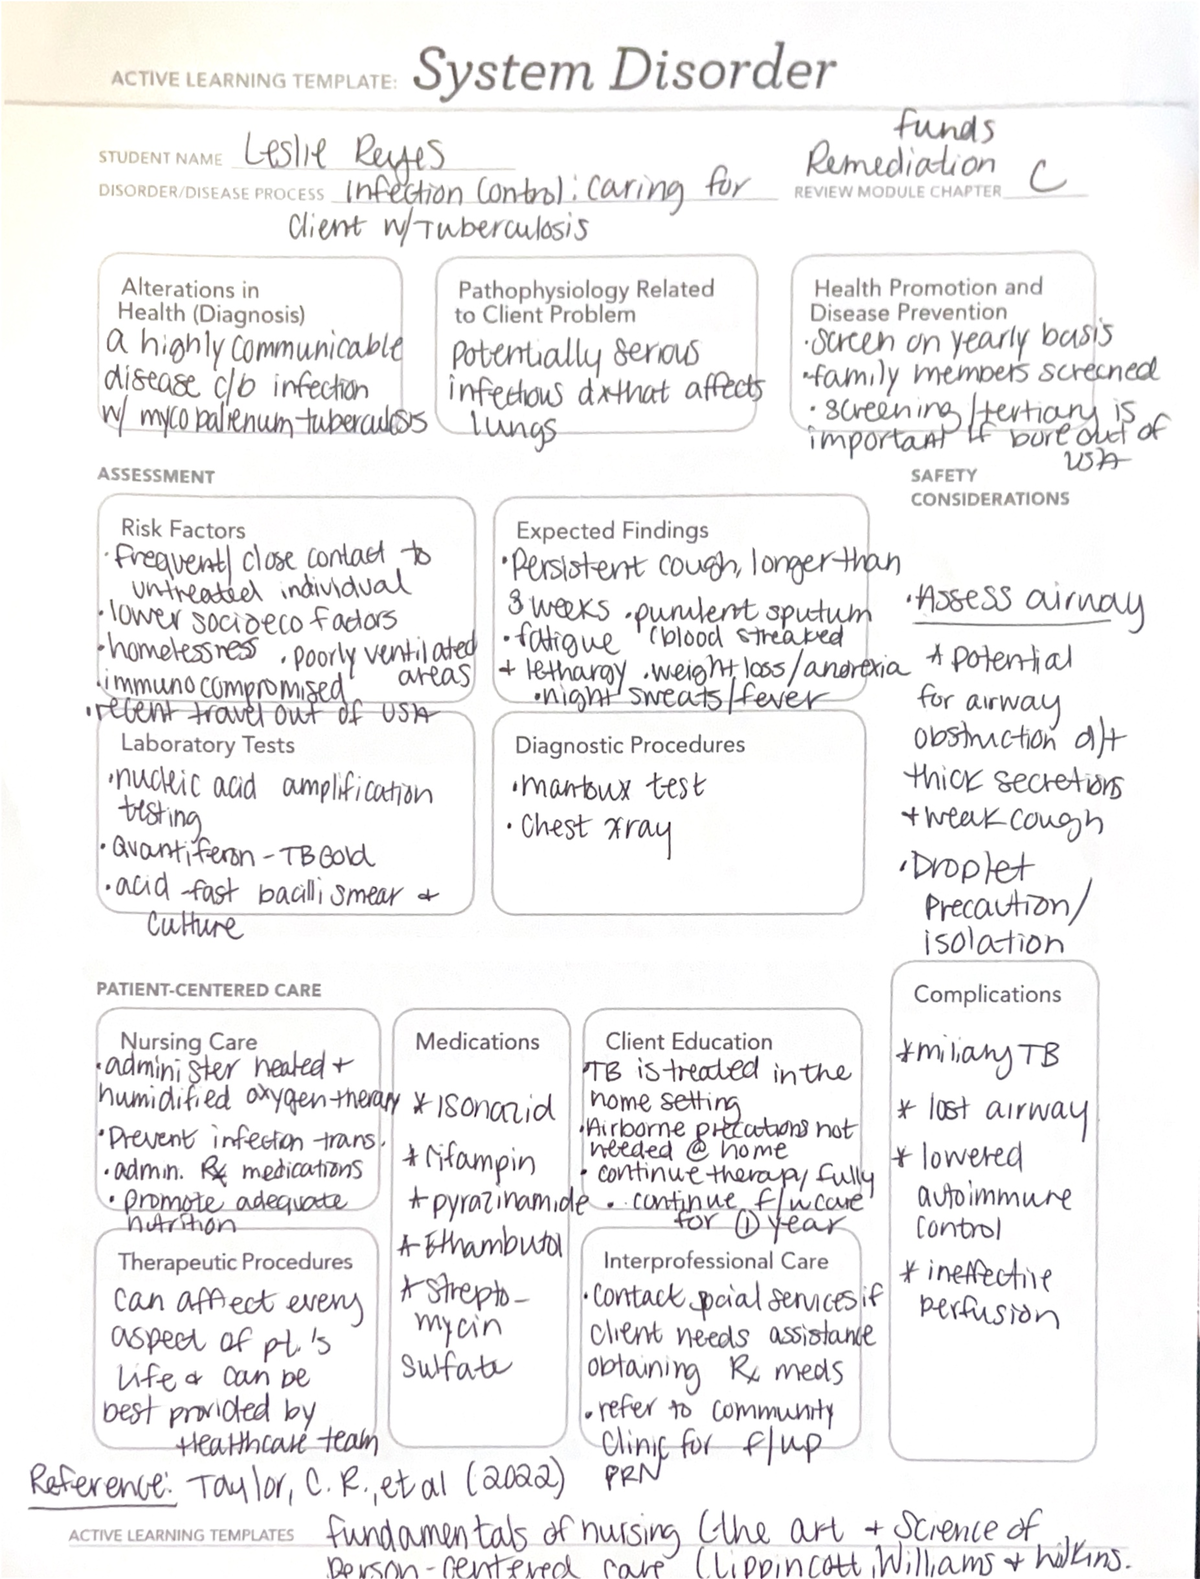 ACTIVE LEARNING TEMPLATE: System Disorder
STUDENT NAME Leslie Reyes
funds
Remediation
DISORDER/DISEASE PROCESS Infection Control: Caring for
Client w/ Tuberculosis
REVIEW MODULE CHAPTER C
Alterations in
Health (Diagnosis)
a highly communicable
disease c/b infection
w/ tuberculosis
Pathophysiology Related
to Client Problem
potentially serious
infectious dx that affects
lungs
Health Promotion and
Disease Prevention
· screen on yearly basis
· family members screened
· screening/tertiary is
important if out of
USA
ASSESSMENT
SAFETY
CONSIDERATIONS
Risk Factors
· frequent/close contact to
untreated individual
· lower socioeco factors
· homelessness · poorly ventilated
areas
· immunocompromised
· recent travel out of USA
Expected Findings
· Persistent cough, longer than
3 weeks · purulent sputum
(blood streaked
· fatigue
+ lethargy · weight loss/anorexia
· night sweats/fever
Laboratory Tests
· nucleic acid amplification
testing
· Quantiferon-TB Gold
· acid-fast bacilli smear +
culture
Diagnostic Procedures
· mantoux test
· Chest xray
· Assess airway
* potential
for airway
obstruction d/t
thick secretions
+ weak cough
· Droplet
Precaution/
isolation
PATIENT-CENTERED CARE
Nursing Care
· administer heated +
humidified oxygen therapy
· Prevent infection trans.
· admin. Rx medications
· promote adequate
nutrition
Medications
* Isonazid
* rifampin
* pyrazinamide
* Ethambutol
* Strepto-
mycin
sulfate
Client Education
TB is treated in the
home setting
· Airborne not
needed @ home
· continue therapy fully
· continue f/u care
for ① year
Complications
* miliary TB
* lost airway
* lowered
autoimmune
control
* ineffective
perfusion
Therapeutic Procedures
can affect every
aspect of pt.'s
life + can be
best provided by
Healthcare team
Interprofessional Care
· contact social services if
client needs assistance
obtaining Rx meds
· refer to community
clinic for f/up
PRN
Reference: Taylor, C. R., et al (2022)
ACTIVE LEARNING TEMPLATES fundamentals of nursing (the art + science of
person-centered care (Lippincott, Williams + Wilkins.